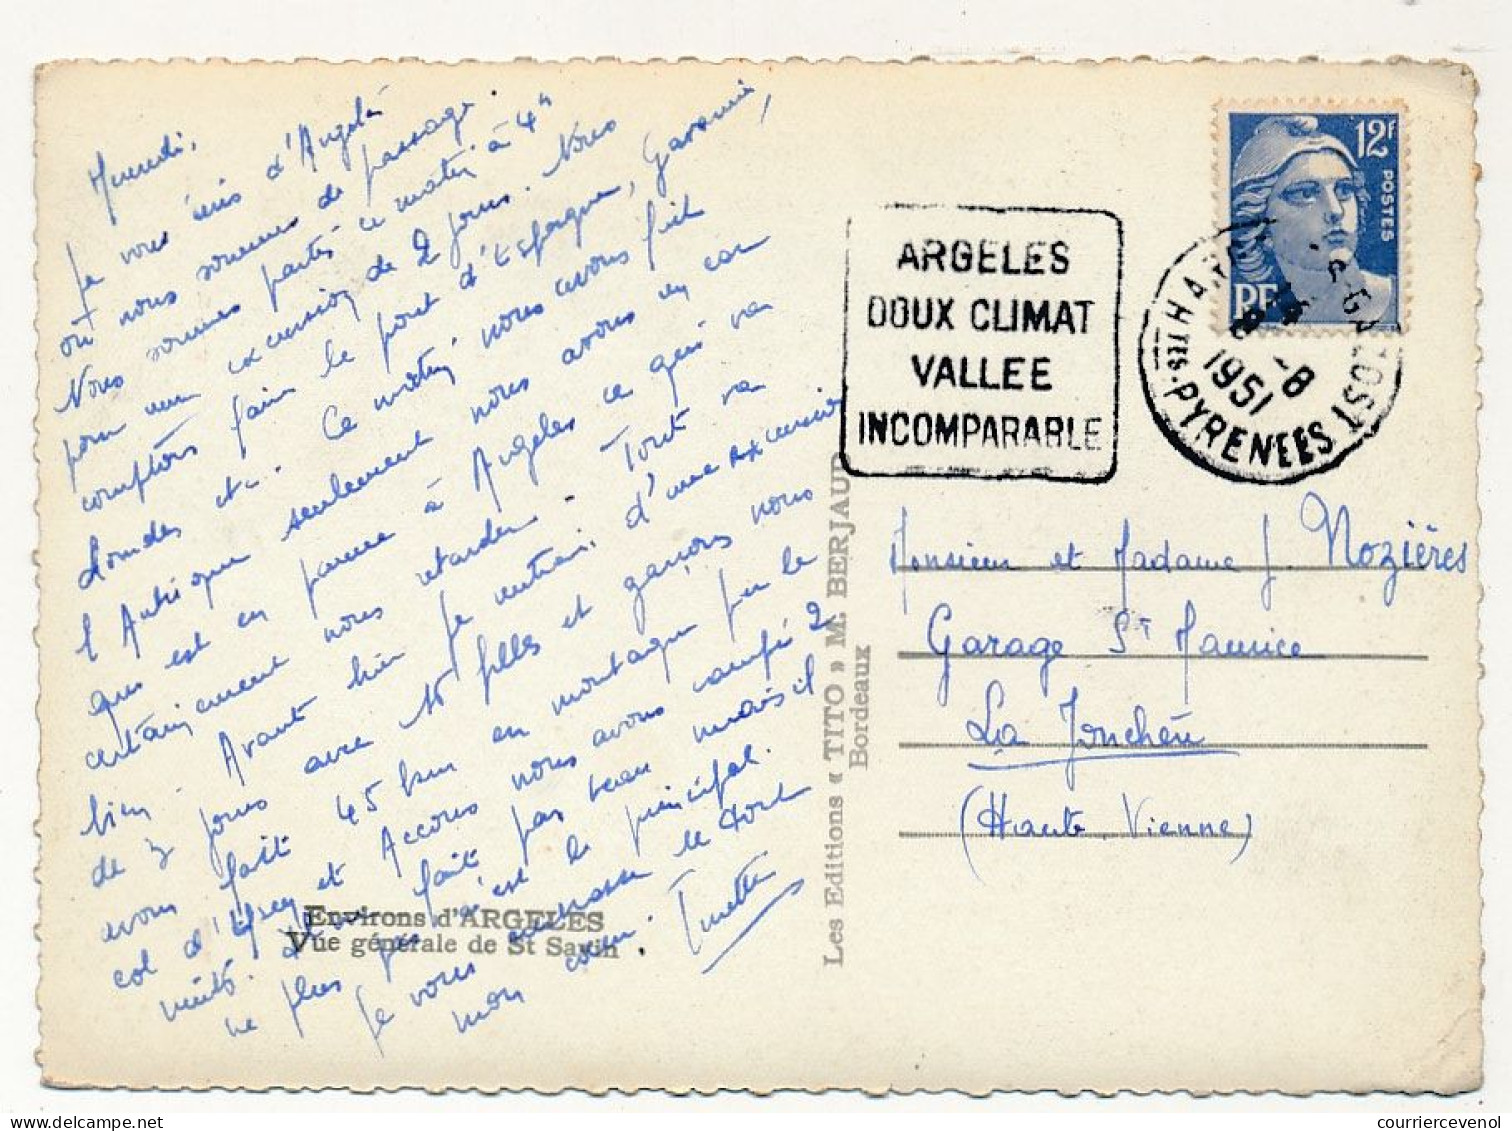 je vous écris d'Argelès
où nous sommes de passage.
Nous sommes partis ce matin à 4h
pour une excursion de 2 jours. Nous
comptons faire le pont d'Espagne, Gavarnie,
Lourdes etc. Ce matin nous avons fait
l'Aubisque seulement nous avons eu car
qui est en panne à Argelès ce qui va
certainement nous retarder. Tout va
bien. Avant hier je rentrais d'une excursion
de 3 jours avec 16 filles et garçons nous
avons fait 45 km en montagne par le
col d' et Accous nous avons campé 2
nuits. Il fait pas beau mais il
ne pleut pas c'est le principal.
Je vous embrasse de tout
mon cœur.
Environs d'ARGELES
Vue générale de St Savin
Les Editions « TITO » M. BERJAUD
Bordeaux
ARGELES
DOUX CLIMAT
VALLEE
INCOMPARABLE
12F
POSTES
RF
-8
1951
TES-PYRENEES
Monsieur et Madame J. Nozières
Garage St Maurice
La Jonchère
(Haute Vienne)
courriercevenol